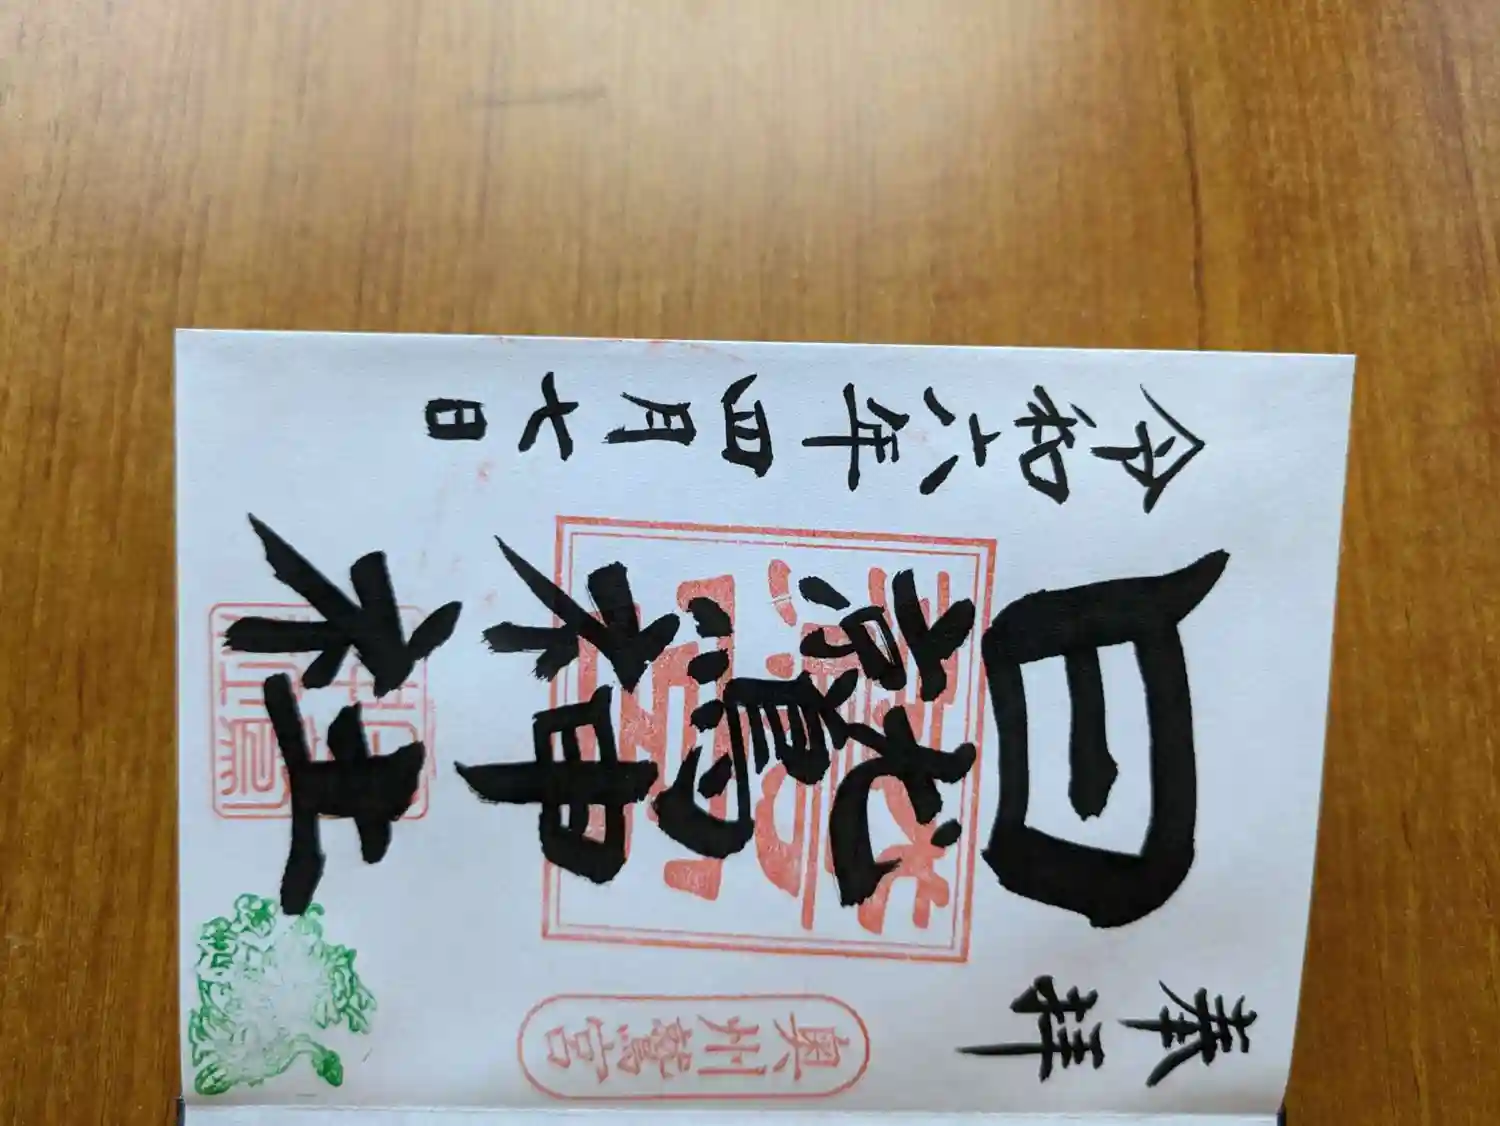 奉拝
奥州鷲宮
日鷲神社
令和六年四月七日